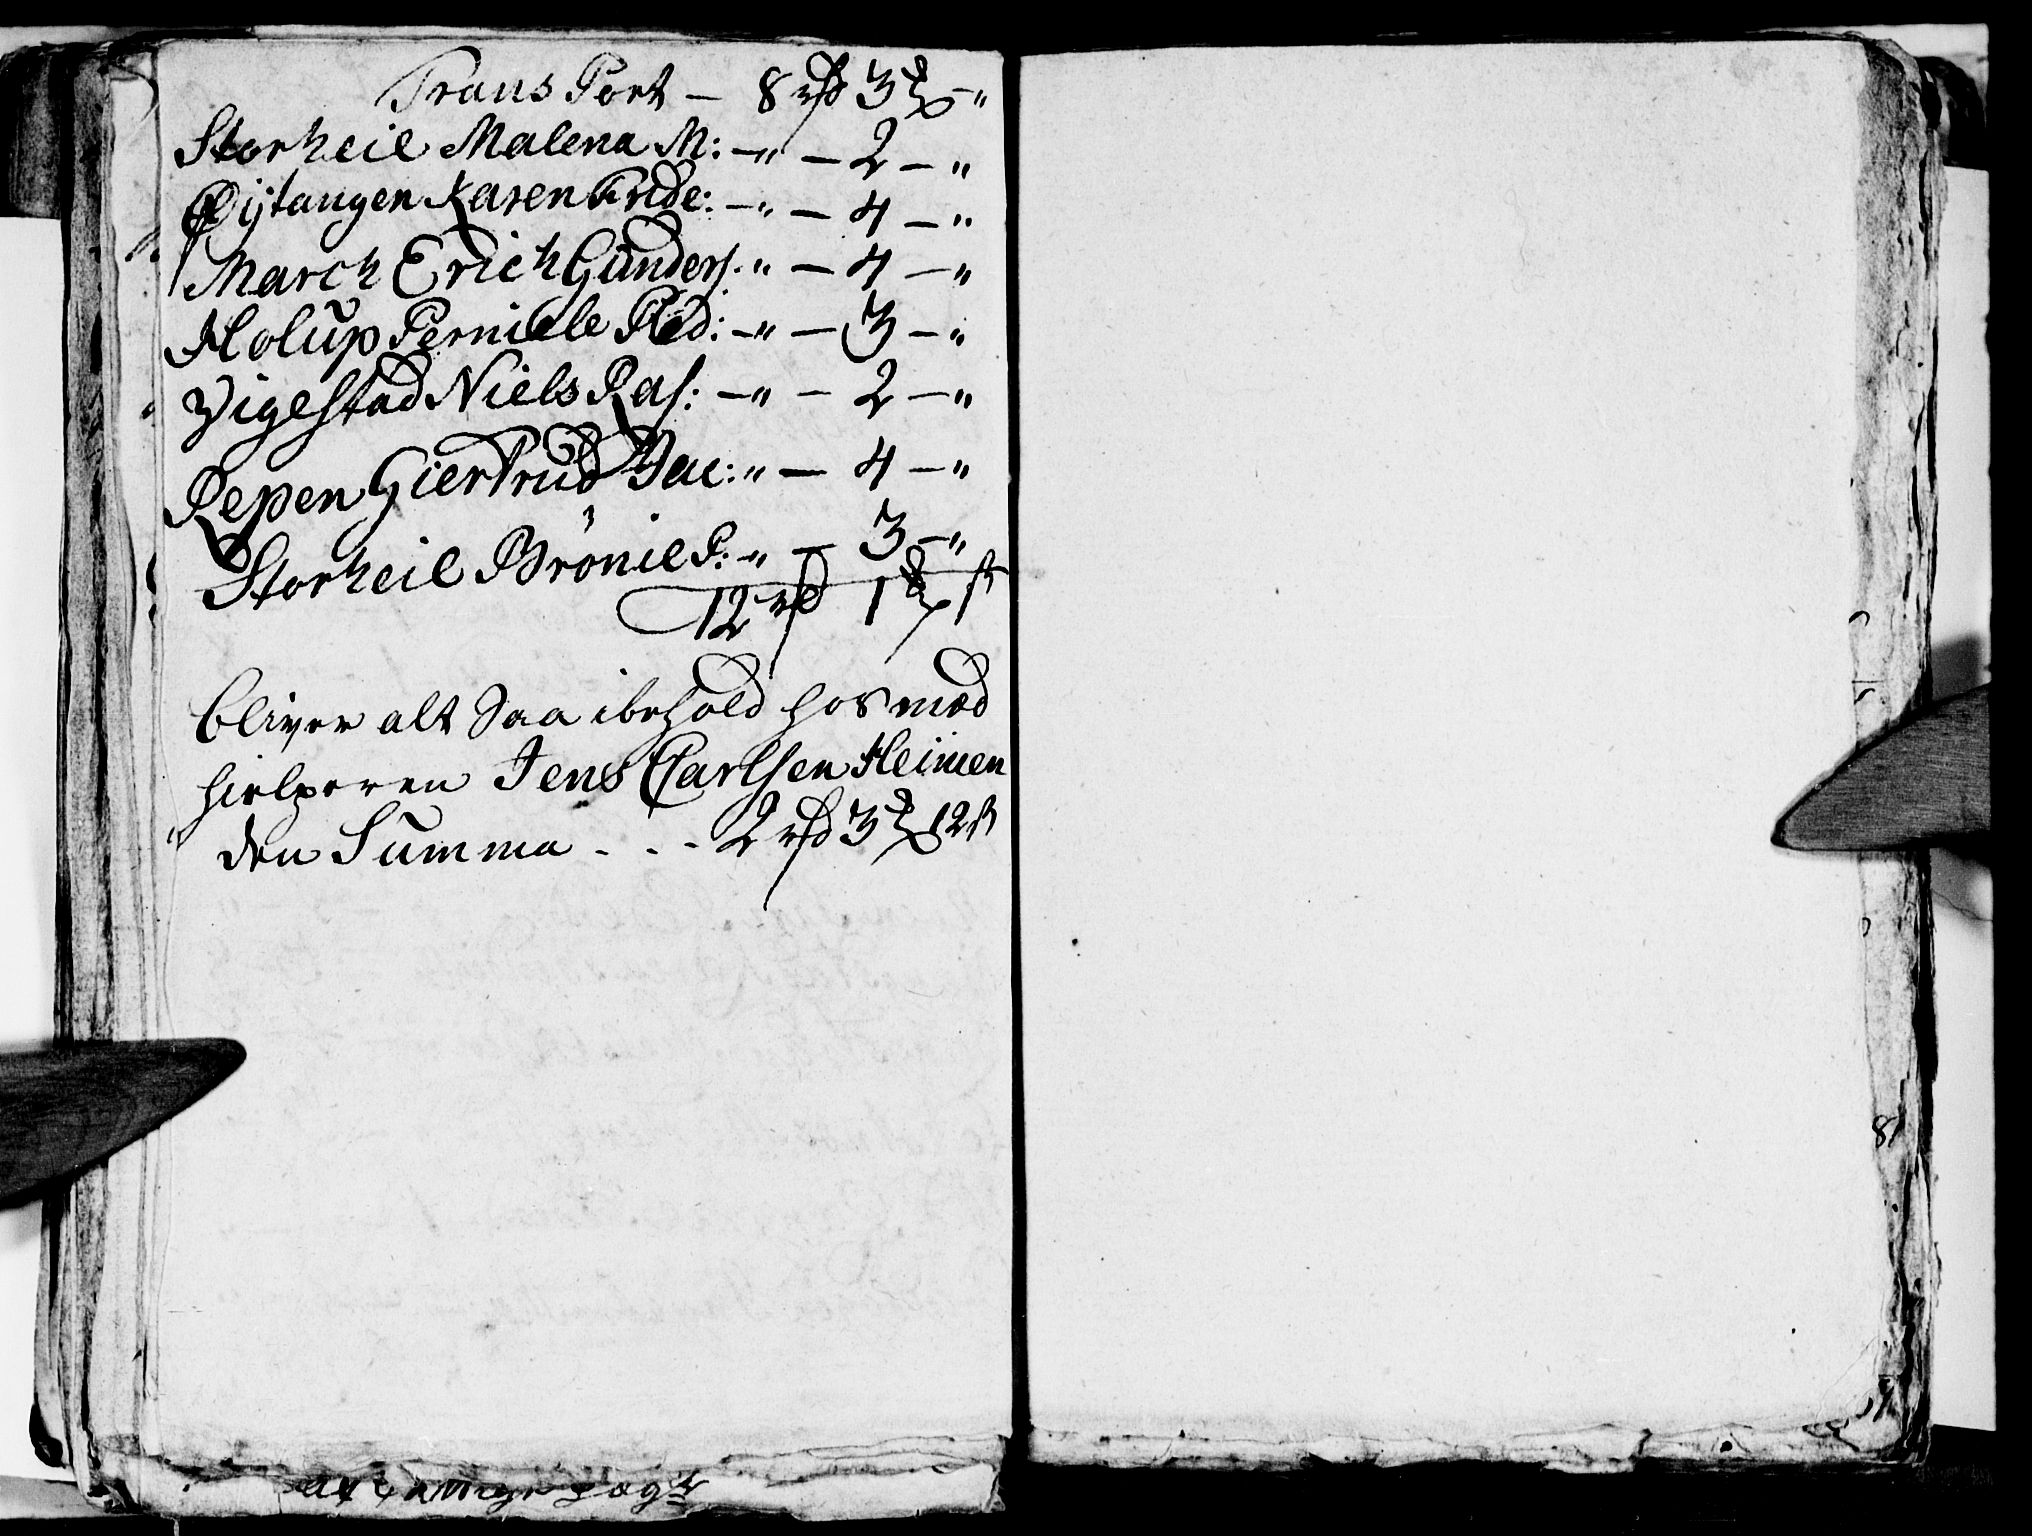 Trans Port — 8 rd 3 ℔ — "
Storheie Malena M: — " — 2 — "
Øijtangen Karen Fride: — " — 4 — "
March Erich Gunders. " — 4 — "
Holup Pernille Ped: — " — 3 — "
Vigestad Niels Ras: — " — 2 — "
Repen Giertrud Jac: " — 4 — "
Storheie Brönie P: — " — 3 — "
12 rd 1 ℔ ſ
bliver alt Saa ibehold hos med
hielperen Jens Carlsen Heimen
den Summa . . . 2 rd 3 ℔ 12 ſ
8